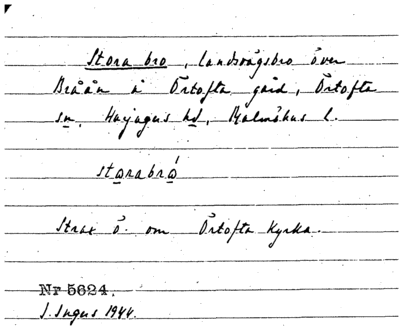 Stora bro, landsvägsbro över
Bråån å Örtofta gård, Örtofta
sn, Harjagers hd, Malmöhus l.
starabrå
Strax ö. om Örtofta kyrka.
Nr 5624.
J. Ingers 1944.